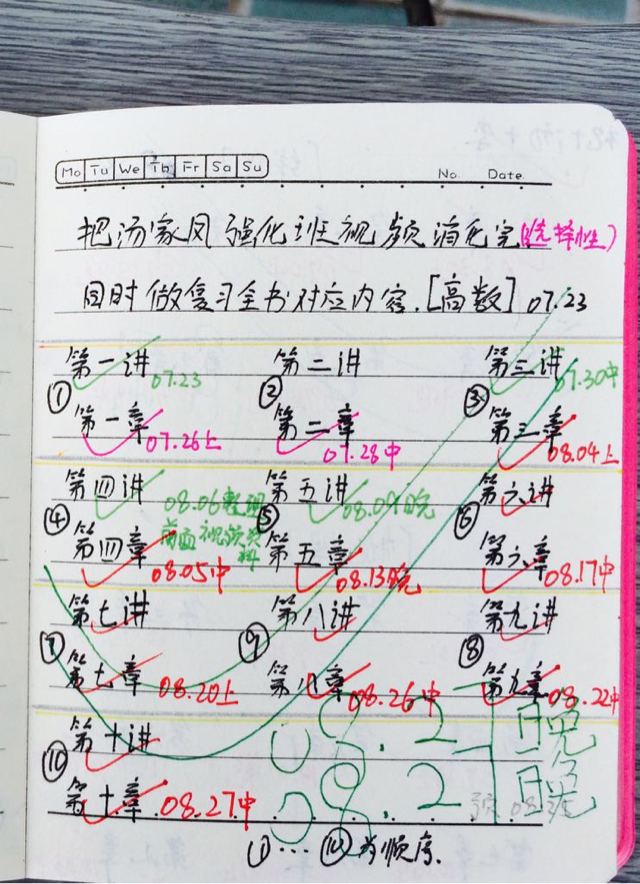 Mo Tu We Th Fr Sa Su No. Date.
把汤家凤强化班视频消化完(选择性)
同时做复习全书对应内容.[高数] 07.23
第一讲 第二讲 第三讲
① 07.23 ② ③ 07.30中
第一章 第二章 第三章
07.26上 07.28中 08.04上
第四讲 08.06整理 第五讲 08.09晚 第六讲
④ 前面视频资料 ⑤ ⑥
第四章 第五章 第六章
08.05中 08.13晚 08.17中
第七讲 第八讲 第九讲
⑦ ⑨ ⑧
第七章 08.20上 第八章 08.26中 第九章 08.22中
第十讲 08.27晚
⑩
第十章 08.27中
①…⑩为顺序.